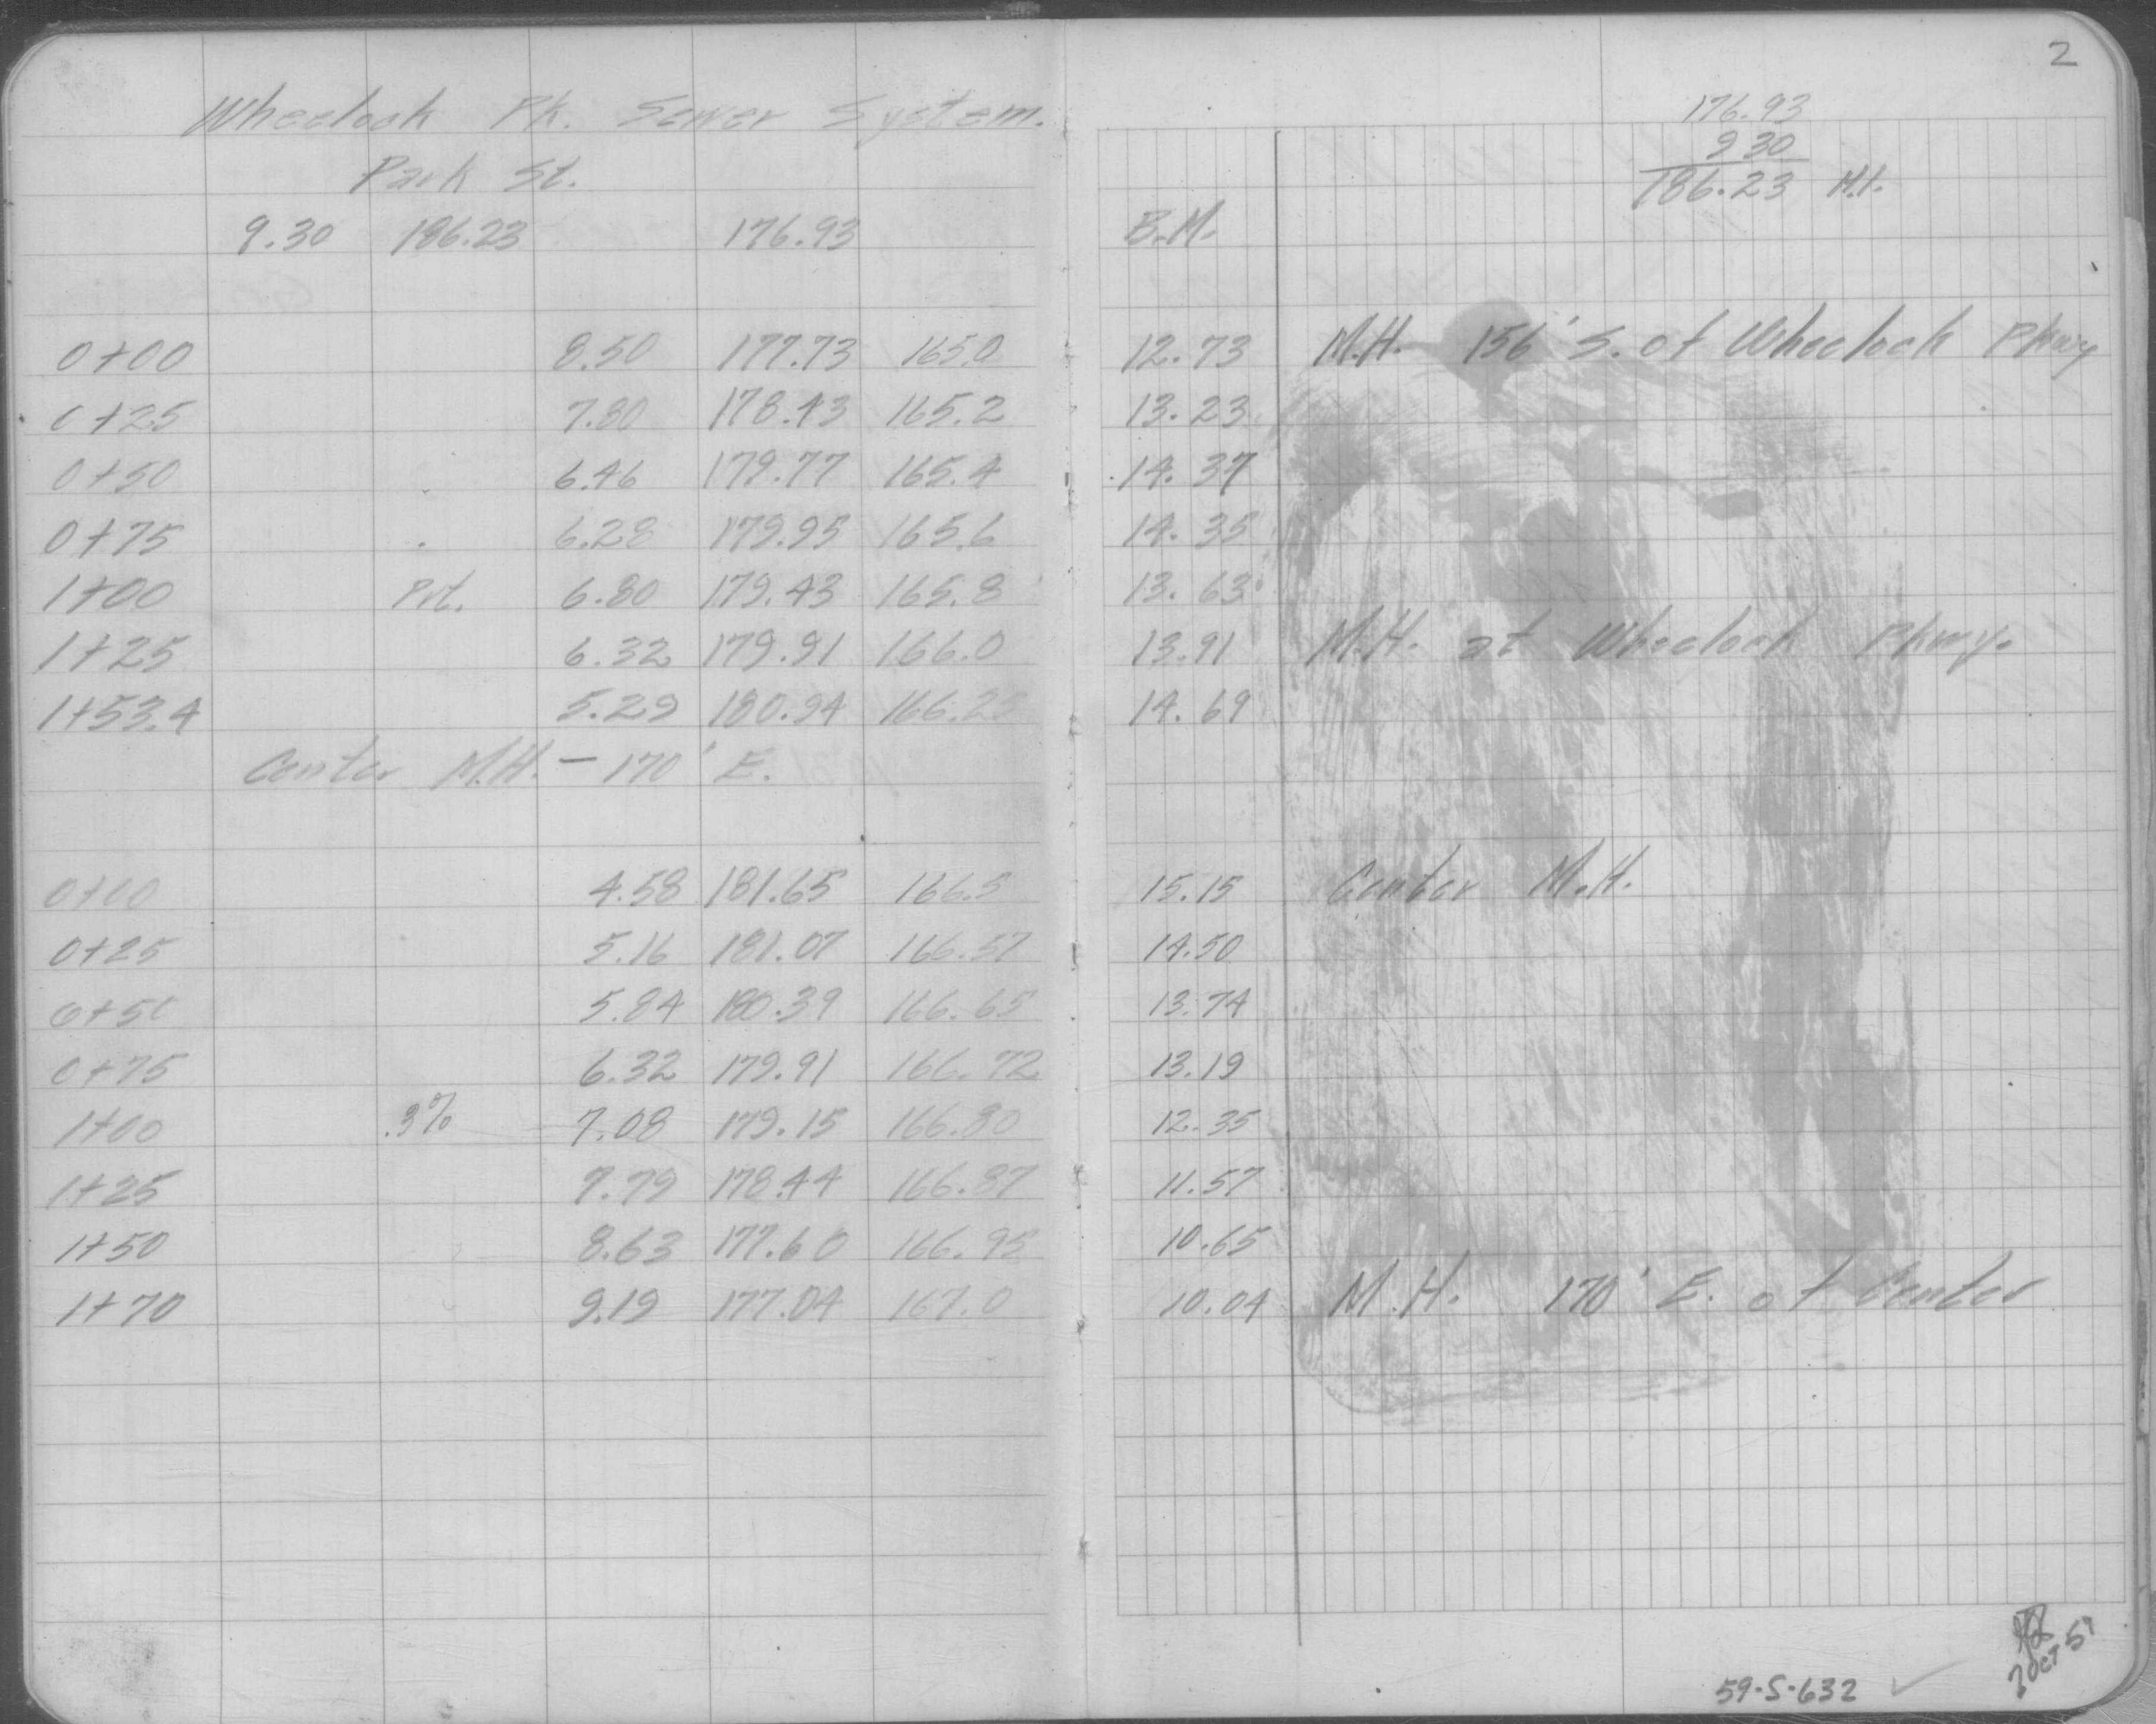 2
Wheelock Pk. Sewer System.
Park St.
176.93
9 30
186.23 H.I.
9.30 186.23 176.93 B.M.
0+00 8.50 177.73 165.0 12.73 M.H. 156' S. of Wheelock Pkwy
0+25 7.80 178.43 165.2 13.23
0+50 6.46 179.77 165.4 14.37
0+75 6.28 179.95 165.6 14.35
1+00 6.80 179.43 165.8 13.63
1+25 6.32 179.91 166.0 13.91 M.H. at Wheelock Pkwy.
1+53.4 5.29 180.94 166.25 14.69
Center M.H. — 170' E.
0+00 4.58 181.65 166.5 15.15 Center M.H.
0+25 5.16 181.07 166.57 14.50
0+50 5.84 180.39 166.65 13.74
0+75 6.32 179.91 166.72 13.19
1+00 .3% 7.08 179.15 166.80 12.35
1+25 7.79 178.44 166.87 11.57
1+50 8.63 177.60 166.95 10.65
1+70 9.19 177.04 167.0 10.04 M.H. 170' E. of Center
59-S-632 ✓